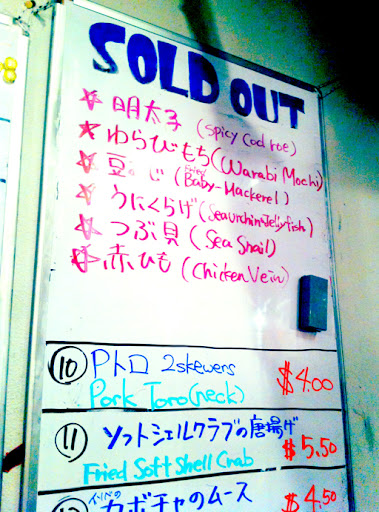 SOLD OUT
☆ 明太子 (Spicy Cod roe)
★ わらびもち (Warabi Mochi)
☆ 豆。じ (Baby-Mackerel)
☆ うにくらげ (Seaurchin Jellyfish)
☆ つぶ貝 (Sea Snail)
☆ 赤ひも (Chicken Vein)
⑩ Pトロ 2skewers $4.00
Pork Toro (neck)
⑪ ソフトシェルクラブの唐揚げ $5.50
Fried Soft Shell Crab
カボチャのムース $4.50